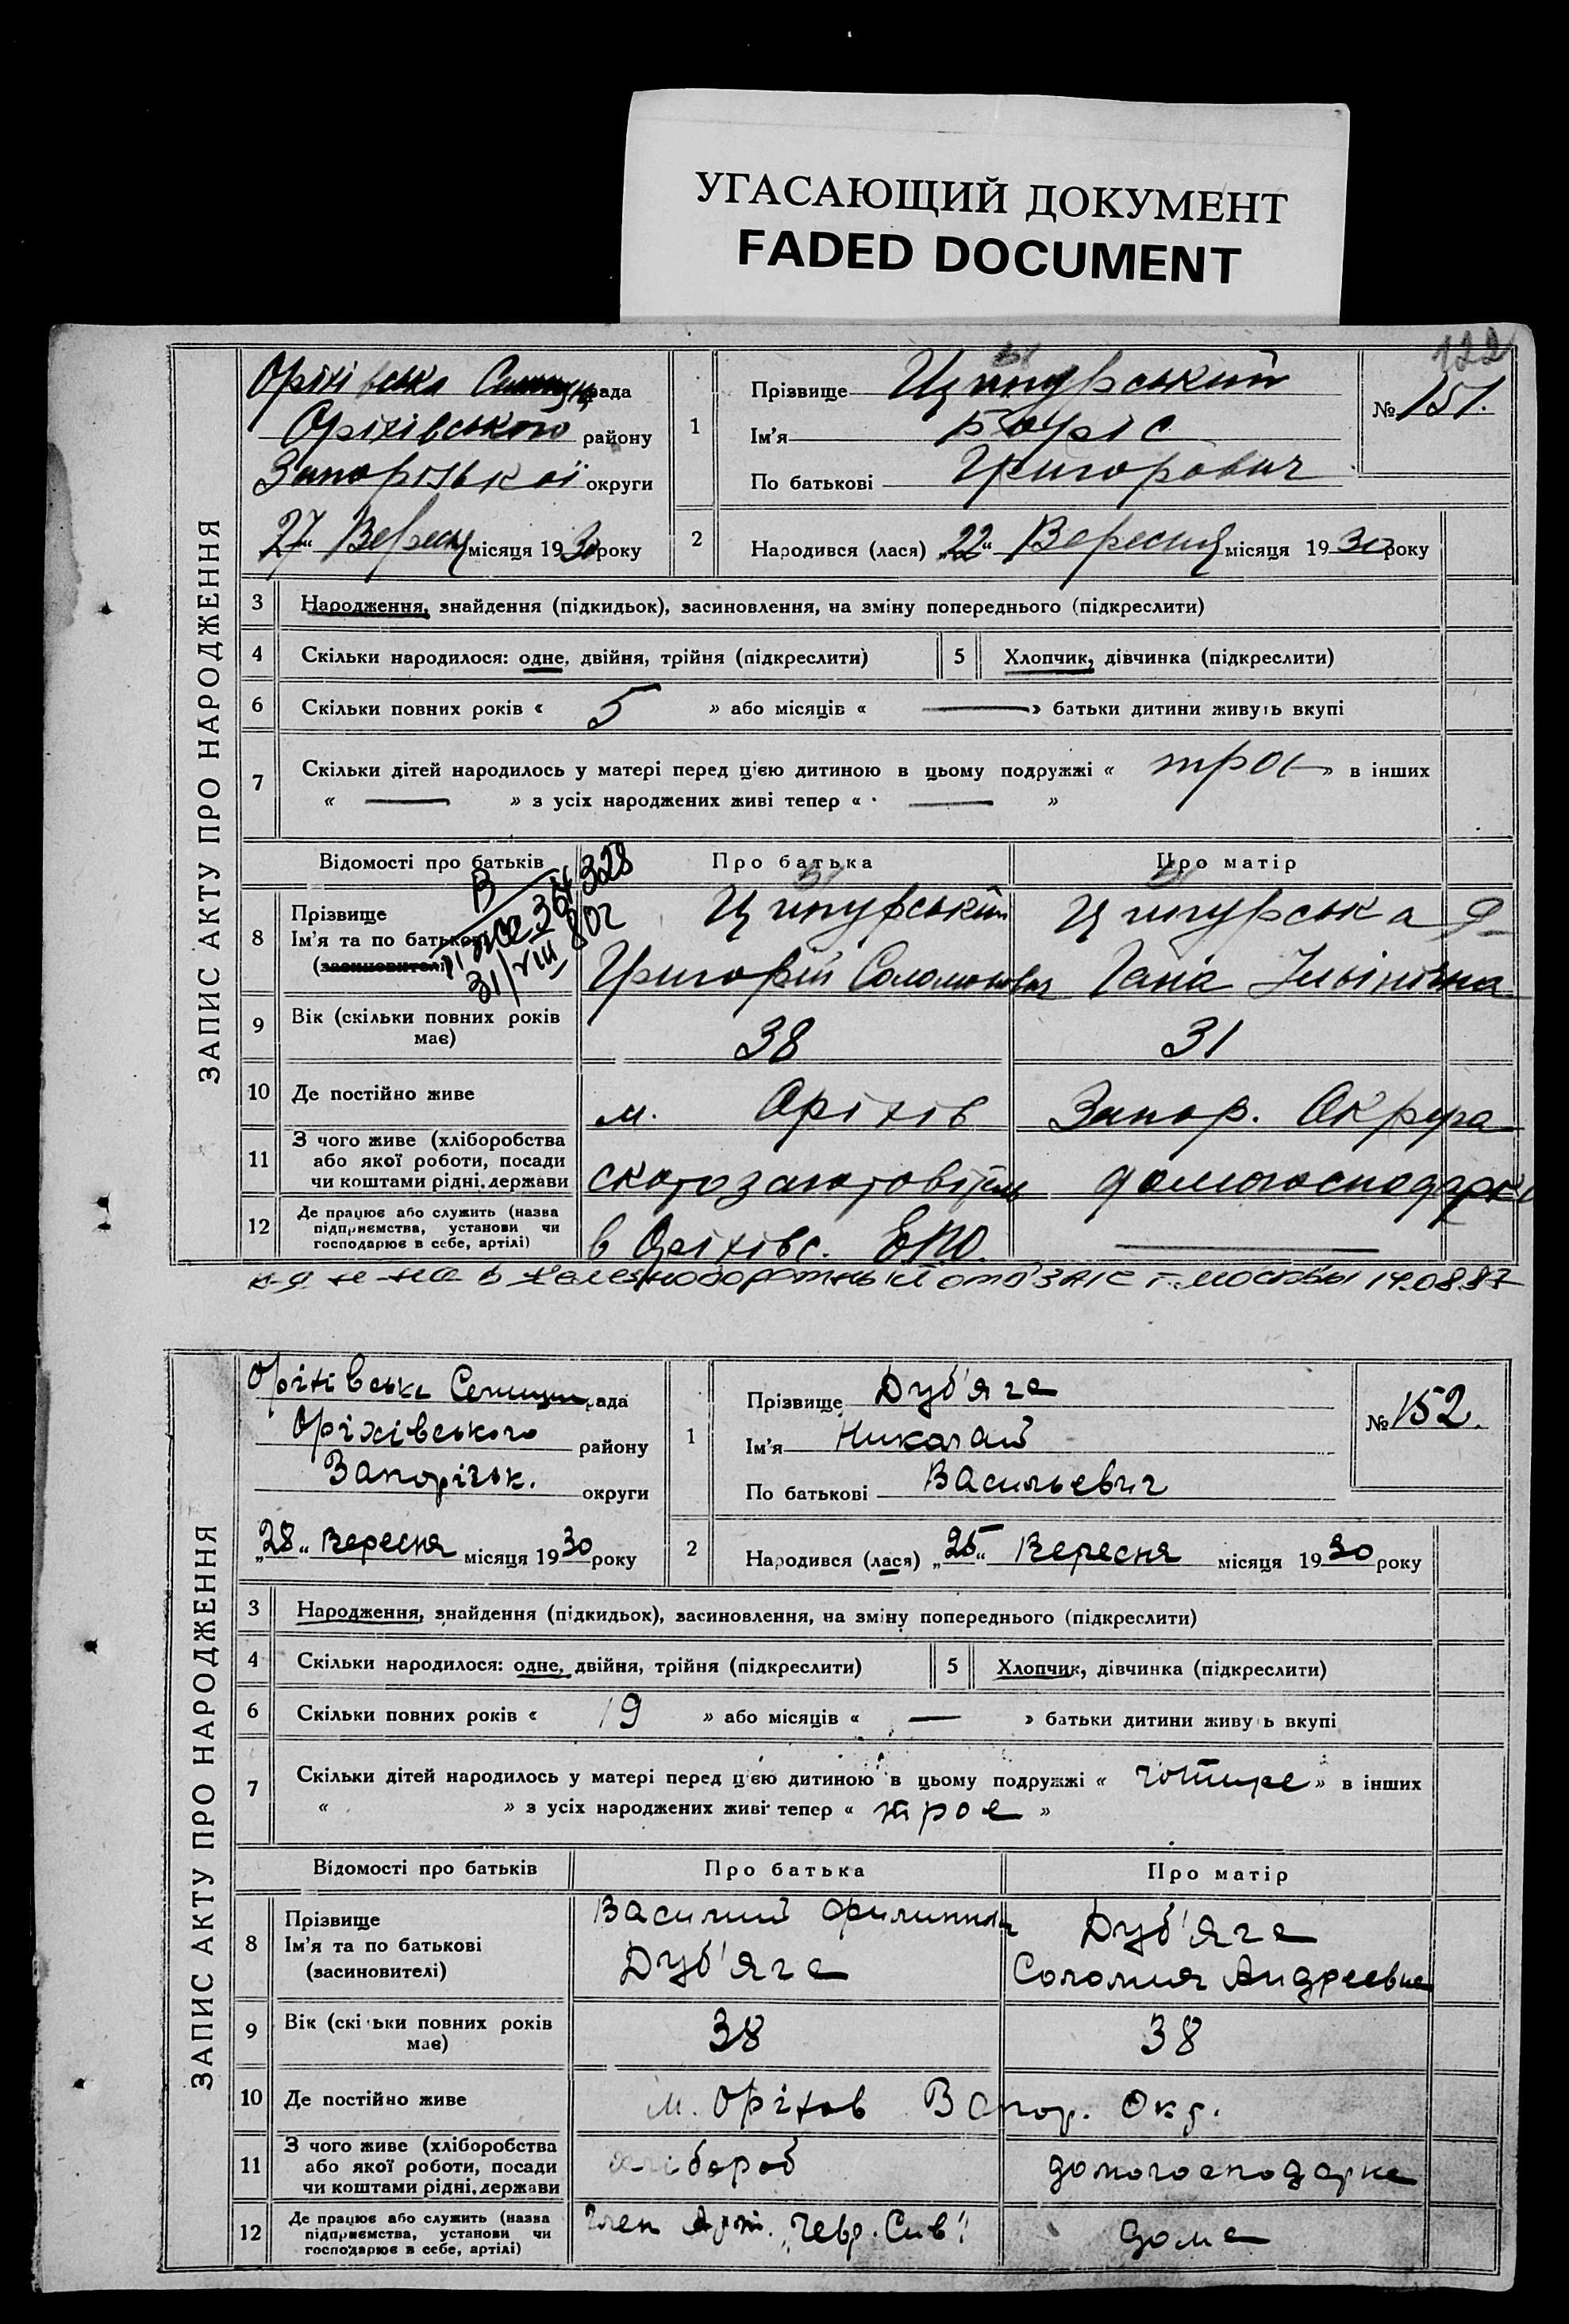 УГАСАЮЩИЙ ДОКУМЕНТ
FADED DOCUMENT
122
ЗАПИС АКТУ ПРО НАРОДЖЕННЯ
Оріхівська рада
Оріхівського району
Запорізької округи
„27“ Вересня місяця 1930 року
1
Прізвище Ципурський
Ім'я Боріс
По батькові Григорович
№ 151.
2
Народився (лася) „22“ Вересня місяця 1930 року
3 Народження, знайдення (підкидьок), засиновлення, на зміну попереднього (підкреслити)
4 Скільки народилося: одне, двійня, трійня (підкреслити) 5 Хлопчик, дівчинка (підкреслити)
6 Скільки повних років « 5 » або місяців « — » батьки дитини живуть вкупі
7 Скільки дітей народилось у матері перед цією дитиною в цьому подружжі « троє » в інших
« — » з усіх народжених живі тепер « — »
Відомості про батьків Про батька Про матір
8 Прізвище
Ім'я та по батькові
(засновителі)
Ципурський
Григорій Соломонович
Ципурська
Ганна Ільінічна
9 Вік (скільки повних років має) 38 31
10 Де постійно живе м. Оріхів Запор. Округа
11 З чого живе (хліборобства
або якої роботи, посади
чи коштами рідні, держави
скотозаготовітель домогосподарка
12 Де працює або служить (назва
підприємства, установи чи
господарює в себе, артілі)
в Оріхівс. ЕПО. —
в отд ЗАГС г. Москвы 14.08.87
ЗАПИС АКТУ ПРО НАРОДЖЕННЯ
Оріхівська Селищн рада
Оріхівського району
Запорізьк. округи
„28“ Вересня місяця 1930 року
1
Прізвище Дуб'яга
Ім'я Николай
По батькові Васильевич
№ 152.
2
Народився (лася) „25“ Вересня місяця 1930 року
3 Народження, знайдення (підкидьок), засиновлення, на зміну попереднього (підкреслити)
4 Скільки народилося: одне, двійня, трійня (підкреслити) 5 Хлопчик, дівчинка (підкреслити)
6 Скільки повних років « 19 » або місяців « — » батьки дитини живуть вкупі
7 Скільки дітей народилось у матері перед цією дитиною в цьому подружжі « чотире » в інших
« » з усіх народжених живі тепер « троє »
Відомості про батьків Про батька Про матір
8 Прізвище
Ім'я та по батькові
(засиновителі)
Василий Филиппович
Дуб'яга
Дуб'яга
Соломия Андреевна
9 Вік (скільки повних років має) 38 38
10 Де постійно живе м. Оріхов Запор. Окр.
11 З чого живе (хліборобства
або якої роботи, посади
чи коштами рідні, держави
хлібороб домогосподарка
12 Де працює або служить (назва
підприємства, установи чи
господарює в себе, артілі)
Член Арт. „Черв. Сив“ дома